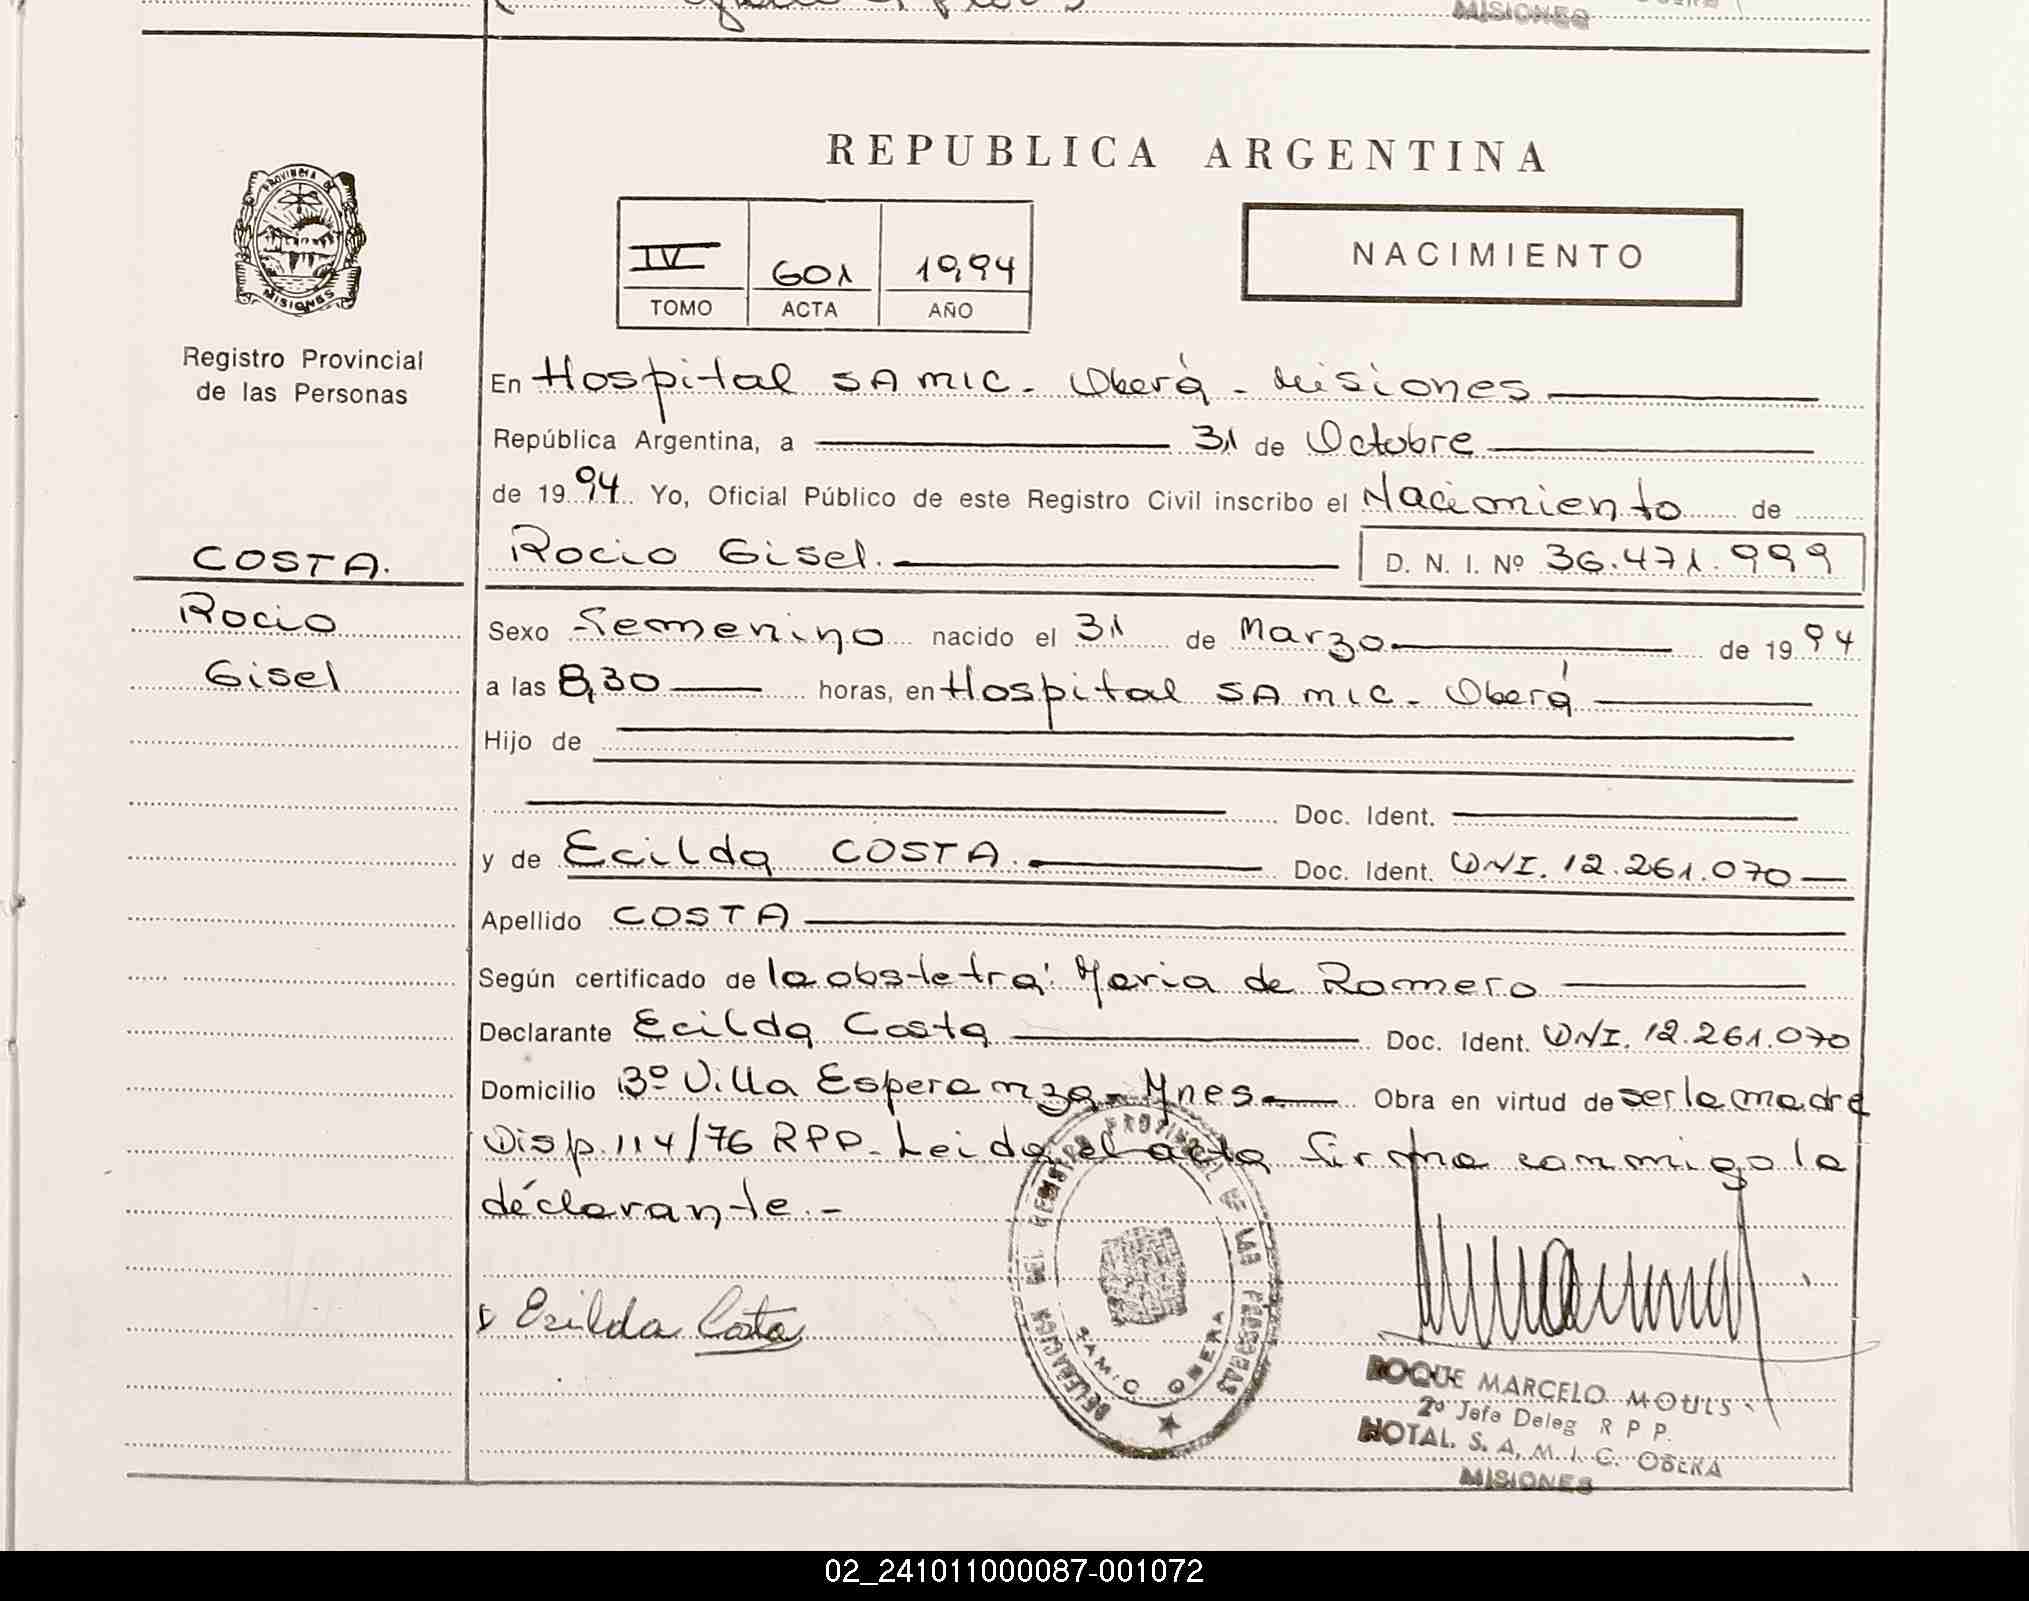 MISIONES
REPUBLICA ARGENTINA
PROVINCIA DE
MISIONES
Registro Provincial
de las Personas
IV 601 1994
TOMO ACTA AÑO
NACIMIENTO
En Hospital SAMIC - Oberá - Misiones
República Argentina, a 31 de Octubre
de 1994 Yo, Oficial Público de este Registro Civil inscribo el Nacimiento de
COSTA.
Rocio
Gisel
Rocio Gisel. D. N. I. Nº 36.471.999
Sexo Femenino nacido el 31 de Marzo de 1994
a las 8,30 horas, en Hospital SAMIC - Oberá
Hijo de
Doc. Ident.
y de Ecilda COSTA. Doc. Ident. DNI. 12.261.070
Apellido COSTA
Según certificado de la obstetra: Maria de Romero
Declarante Ecilda Costa Doc. Ident. DNI. 12.261.070
Domicilio Bº Villa Esperanza - Mnes. Obra en virtud de ser la madre
Disp. 114/76 RPP - Leida el acta firma conmigo la
declarante. -
Ecilda Costa
DELEGACION DEL REGISTRO PROVINCIAL DE LAS PERSONAS
SAMIC OBERA
ROQUE MARCELO MOULS
2º Jefe Deleg R P P.
HOTAL. S. A. M. I. C. OBERA
MISIONES
02_241011000087-001072